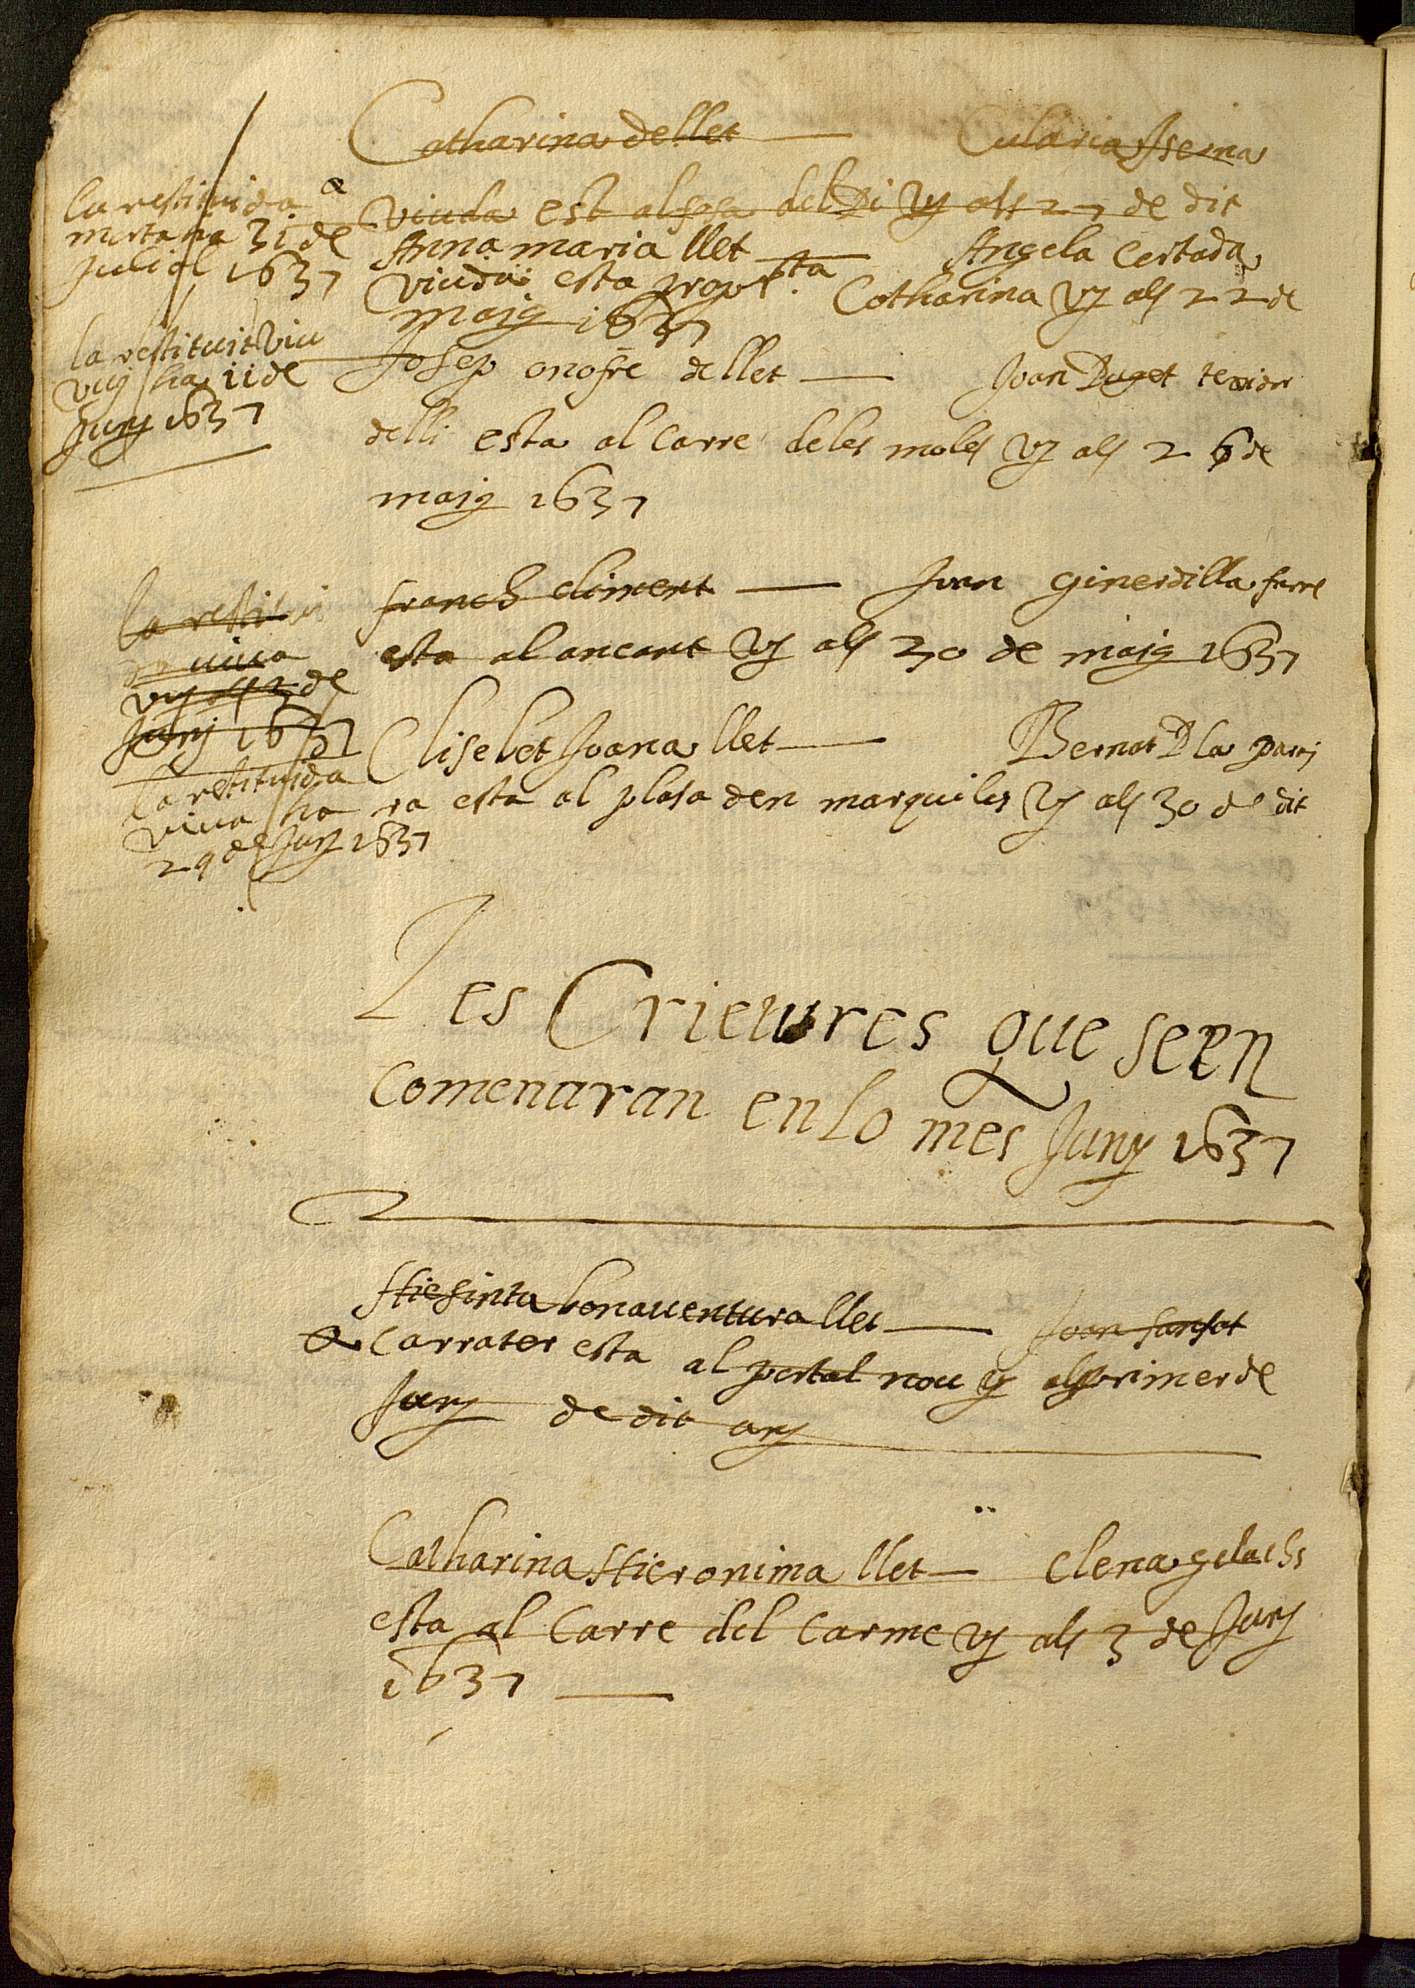 Catharina de llet — Eularia Iserna
viuda est al fossa del Pi vy als 27 de dit
Anna maria llet — Angela certada
viuda esta prop sta Catharina vy als 22 de
maig 1637
Josep onofre de llet — Joan Duget texidor
de lli esta al carre de les moles vy als 26 de
maig 1637
la restituida
morta ha 31 de
Juliol 1637
la restituit viu
vuy ha 11 de
Juny 1637
franch climent — Joan giner dilla farre
esta al ancant vy als 30 de maig 1637
Elisebet Joana llet — Bernat D la parj
ra esta al plasa den marquiles vy als 30 de dit
la restitui
da viva
vuy als 2 de
Juny 1637
la restituida
viua ha
29 de Juny 1637
Les Crieures que seen
comenaran en lo mes Juny 1637
Hiesinta bonauentura llet — Joan sansot
carrater esta al portal nou vy als primer de
Juny de dit any
Catharina Hieronima llet — Elena
esta al Carre del Carme vy als 3 de Juny
1637